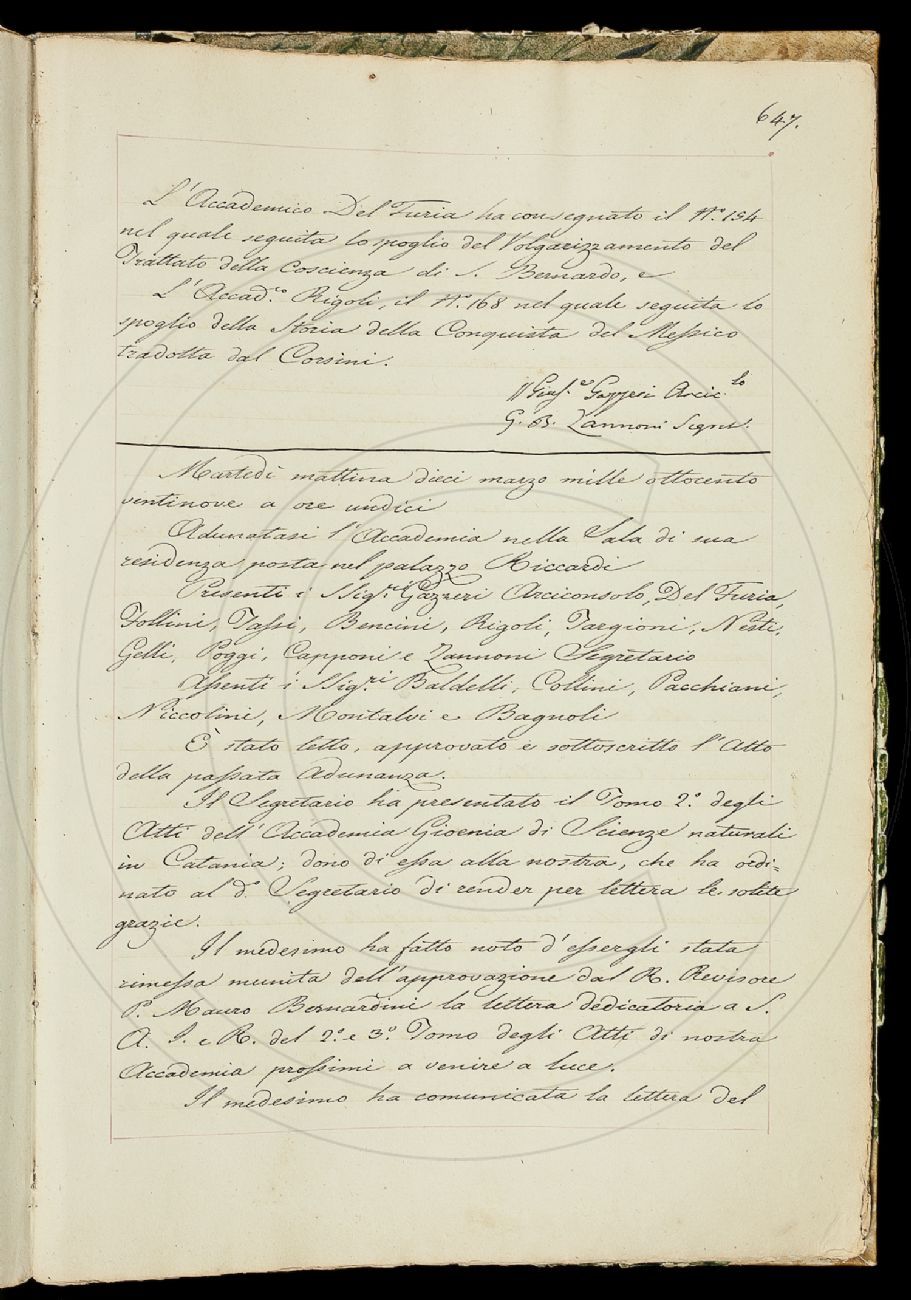 647.
L'Accademico Del Furia ha consegnato il N.º 154
nel quale seguita lo spoglio del Volgarizzamento del
Trattato della Coscienza di S. Bernardo, e
L'Accad.co Rigoli, il N.º 168 nel quale seguita lo
spoglio della Storia della Conquista del Messico
tradotta dal Corsini.
Gius.e Gazzeri Arcic.lo
G. B. Zannoni Segret.
Martedì mattina dieci marzo mille ottocento
ventinove a ore undici
Adunatasi l'Accademia nella Sala di sua
residenza posta nel palazzo Riccardi
Presenti i Sig.ri Gazzeri Arciconsolo, Del Furia,
Follini, Tassi, Bencini, Rigoli, Targioni, Nesti,
Gelli, Poggi, Capponi e Zannoni Segretario
Assenti i Sig.ri Baldelli, Collini, Pacchiani,
Niccolini, Montalvi e Bagnoli
È stato letto, approvato e sottoscritto l'Atto
della passata Adunanza.
Il Segretario ha presentato il Tomo 2.º degli
Atti dell'Accademia Gioenia di Scienze naturali
in Catania; dono di essa alla nostra, che ha ordi=
nato al d.º Segretario di render per lettera le solite
grazie.
Il medesimo ha fatto noto d'essergli stata
rimessa munita dell'approvazione dal R. Revisore
P. Mauro Bernardini la lettera dedicatoria a S.
A. I. e R. del 2.º e 3.º Tomo degli Atti di nostra
Accademia prossimi a venire a luce.
Il medesimo ha comunicata la lettera del